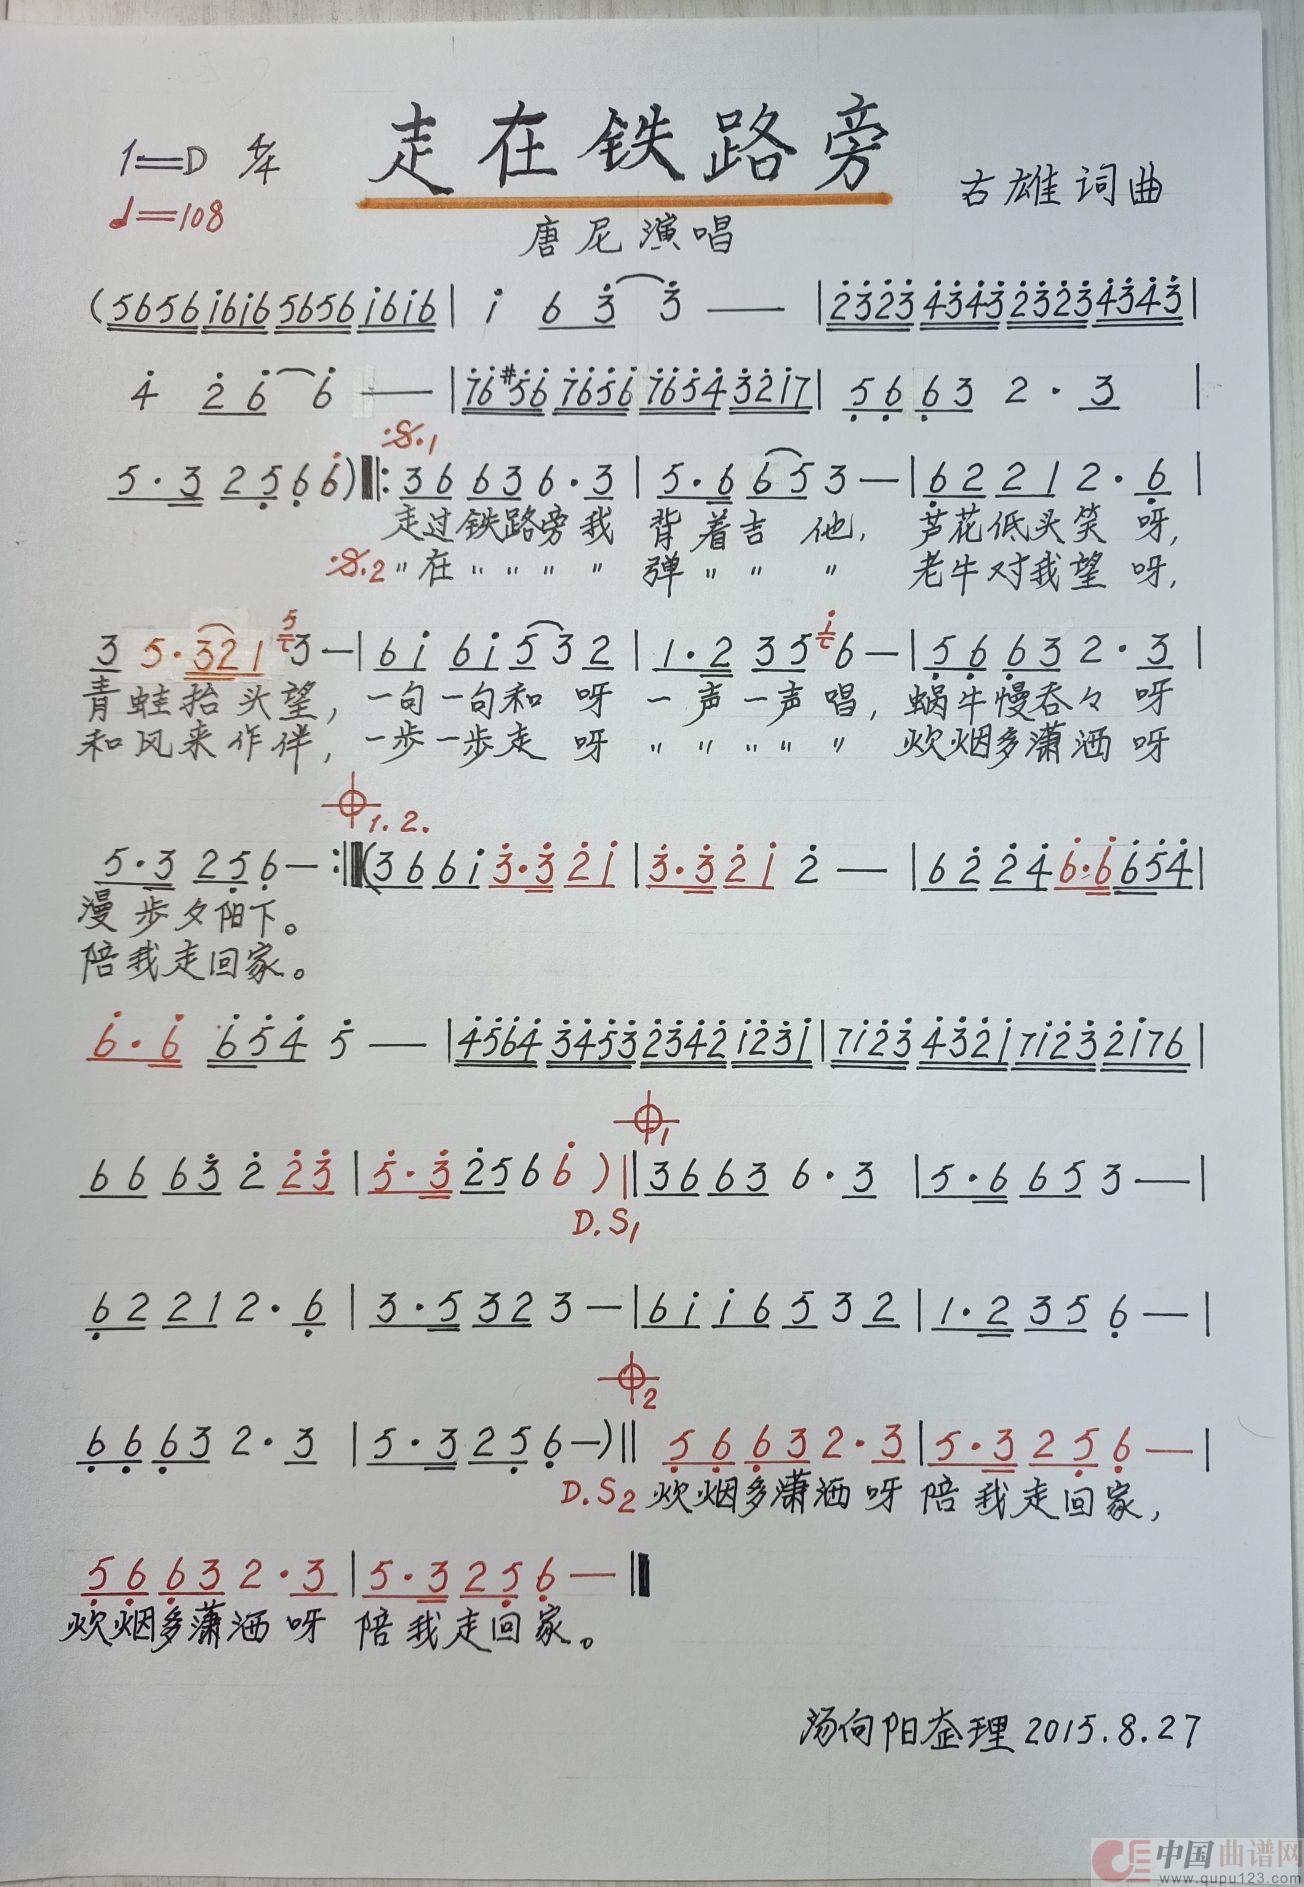 走在铁路旁
1=D 4/4
♩=108
古雄词曲
唐尼演唱
(5656 i6i6 5656 i6i6 | i 6 3 3 — | 2323 4343 2323 4343 |
4 2 6 6 — | 76#56 7656 7654 32i7 | 56 63 2 · 3 |
5·3 25 6 6 ) ‖: 36 63 6·3 | 5·6 65 3 — | 62 21 2·6 |
𝄋.1
走过铁路旁我 背着吉他, 芦花低头笑呀,
𝄋.2 〃在〃〃〃〃 弹〃〃〃 老牛对我望呀,
3 5·321 3 — | 6i 6i 5 3 2 | 1·2 35 6 — | 56 63 2·3 |
青蛙抬头望, 一句一句和呀 一声一声唱, 蜗牛慢吞々呀
和风来作伴, 一步一步走呀 〃〃〃〃〃 炊烟多潇洒呀
1. 2.
5·3 25 6 — :‖ (36 6i 3·3 2i | 3·3 2i 2 — | 62 24 6·6 654 |
漫步夕阳下。
陪我走回家。
6·6 654 5 — | 4564 3453 2342 i23i | 7i23 432i 7i23 2i76 |
66 63 2 23 | 5·3 25 6 6 ) ‖ 36 63 6·3 | 5·6 65 3 — |
D.S1
62 21 2·6 | 3·5 32 3 — | 6i i6 5 3 2 | 1·2 35 6 — |
66 63 2·3 | 5·3 25 6 —) ‖ 56 63 2·3 | 5·3 25 6 — |
D.S2 炊烟多潇洒呀 陪我走回家,
56 63 2·3 | 5·3 25 6 — ‖
炊烟多潇洒呀 陪我走回家。
汤向阳整理 2015.8.27
中国曲谱网
www.qupu123.com